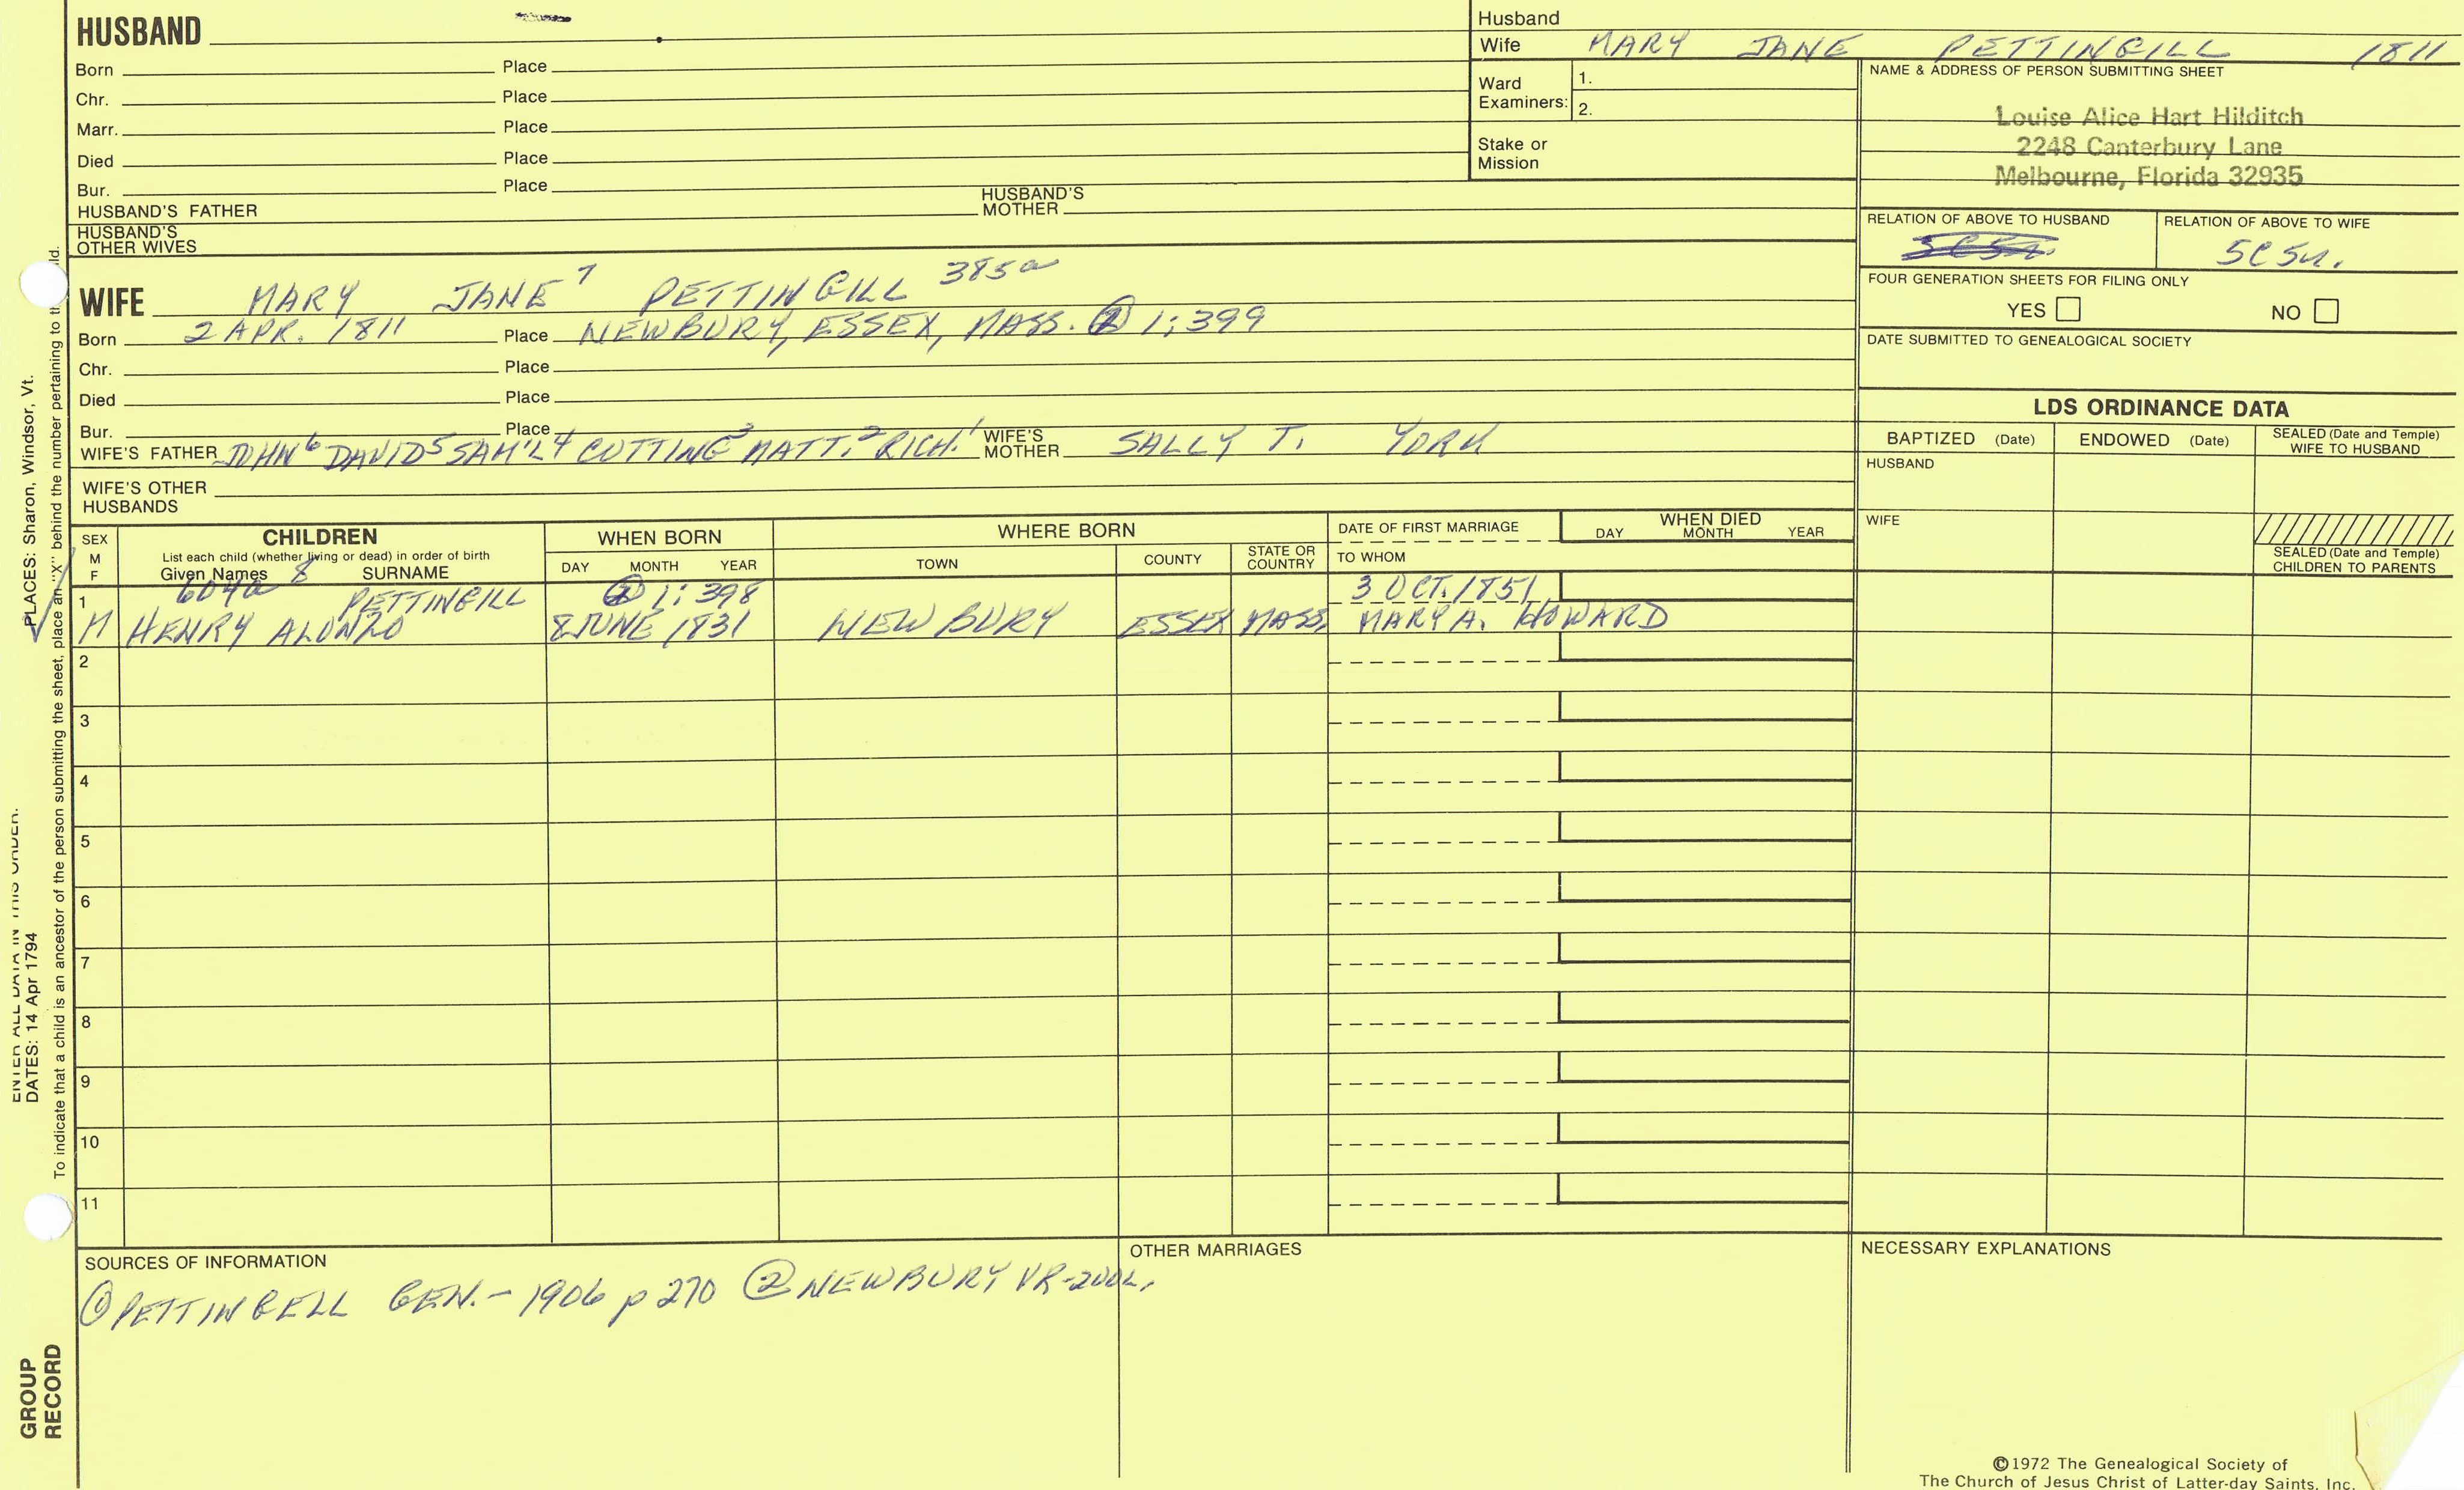 HUSBAND
Born Place
Chr. Place
Marr. Place
Died Place
Bur. Place
HUSBAND'S FATHER HUSBAND'S MOTHER
HUSBAND'S OTHER WIVES
Husband
Wife MARY JANE PETTINGILL 1811
Ward Examiners: 1.
2.
Stake or Mission
NAME & ADDRESS OF PERSON SUBMITTING SHEET
Louise Alice Hart Hilditch
2248 Canterbury Lane
Melbourne, Florida 32935
RELATION OF ABOVE TO HUSBAND
RELATION OF ABOVE TO WIFE
5C5R.
FOUR GENERATION SHEETS FOR FILING ONLY
YES NO
DATE SUBMITTED TO GENEALOGICAL SOCIETY
WIFE MARY JANE 7 PETTINGILL 385a
Born 2 APR. 1811 Place NEWBURY, ESSEX, MASS. ② 1:399
Chr. Place
Died Place
Bur. Place
WIFE'S FATHER JOHN 6 DAVID 5 SAM'L 4 CUTTING 3 MATT. 2 RICH. 1 WIFE'S MOTHER SALLY T. YORK
WIFE'S OTHER HUSBANDS
LDS ORDINANCE DATA
BAPTIZED (Date) ENDOWED (Date) SEALED (Date and Temple) WIFE TO HUSBAND
HUSBAND
WIFE
SEALED (Date and Temple) CHILDREN TO PARENTS
SEX M F
CHILDREN
List each child (whether living or dead) in order of birth
Given Names 8 SURNAME
WHEN BORN
DAY MONTH YEAR
WHERE BORN
TOWN COUNTY STATE OR COUNTRY
DATE OF FIRST MARRIAGE
TO WHOM
WHEN DIED
DAY MONTH YEAR
1 604a PETTINGILL ② 1:398 3 OCT. 1851
M HENRY ALONZO 8 JUNE 1831 NEWBURY ESSEX MASS. MARY A. HOWARD
2
3
4
5
6
7
8
9
10
11
SOURCES OF INFORMATION
① PETTINGELL GEN. - 1906 p 270 ② NEWBURY VR-2VOL.
OTHER MARRIAGES
NECESSARY EXPLANATIONS
©1972 The Genealogical Society of
The Church of Jesus Christ of Latter-day Saints, Inc.
ENTER ALL DATA IN THIS ORDER.
DATES: 14 Apr 1794
PLACES: Sharon, Windsor, Vt.
To indicate that a child is an ancestor of the person submitting the sheet, place an "X" behind the number pertaining to
GROUP RECORD